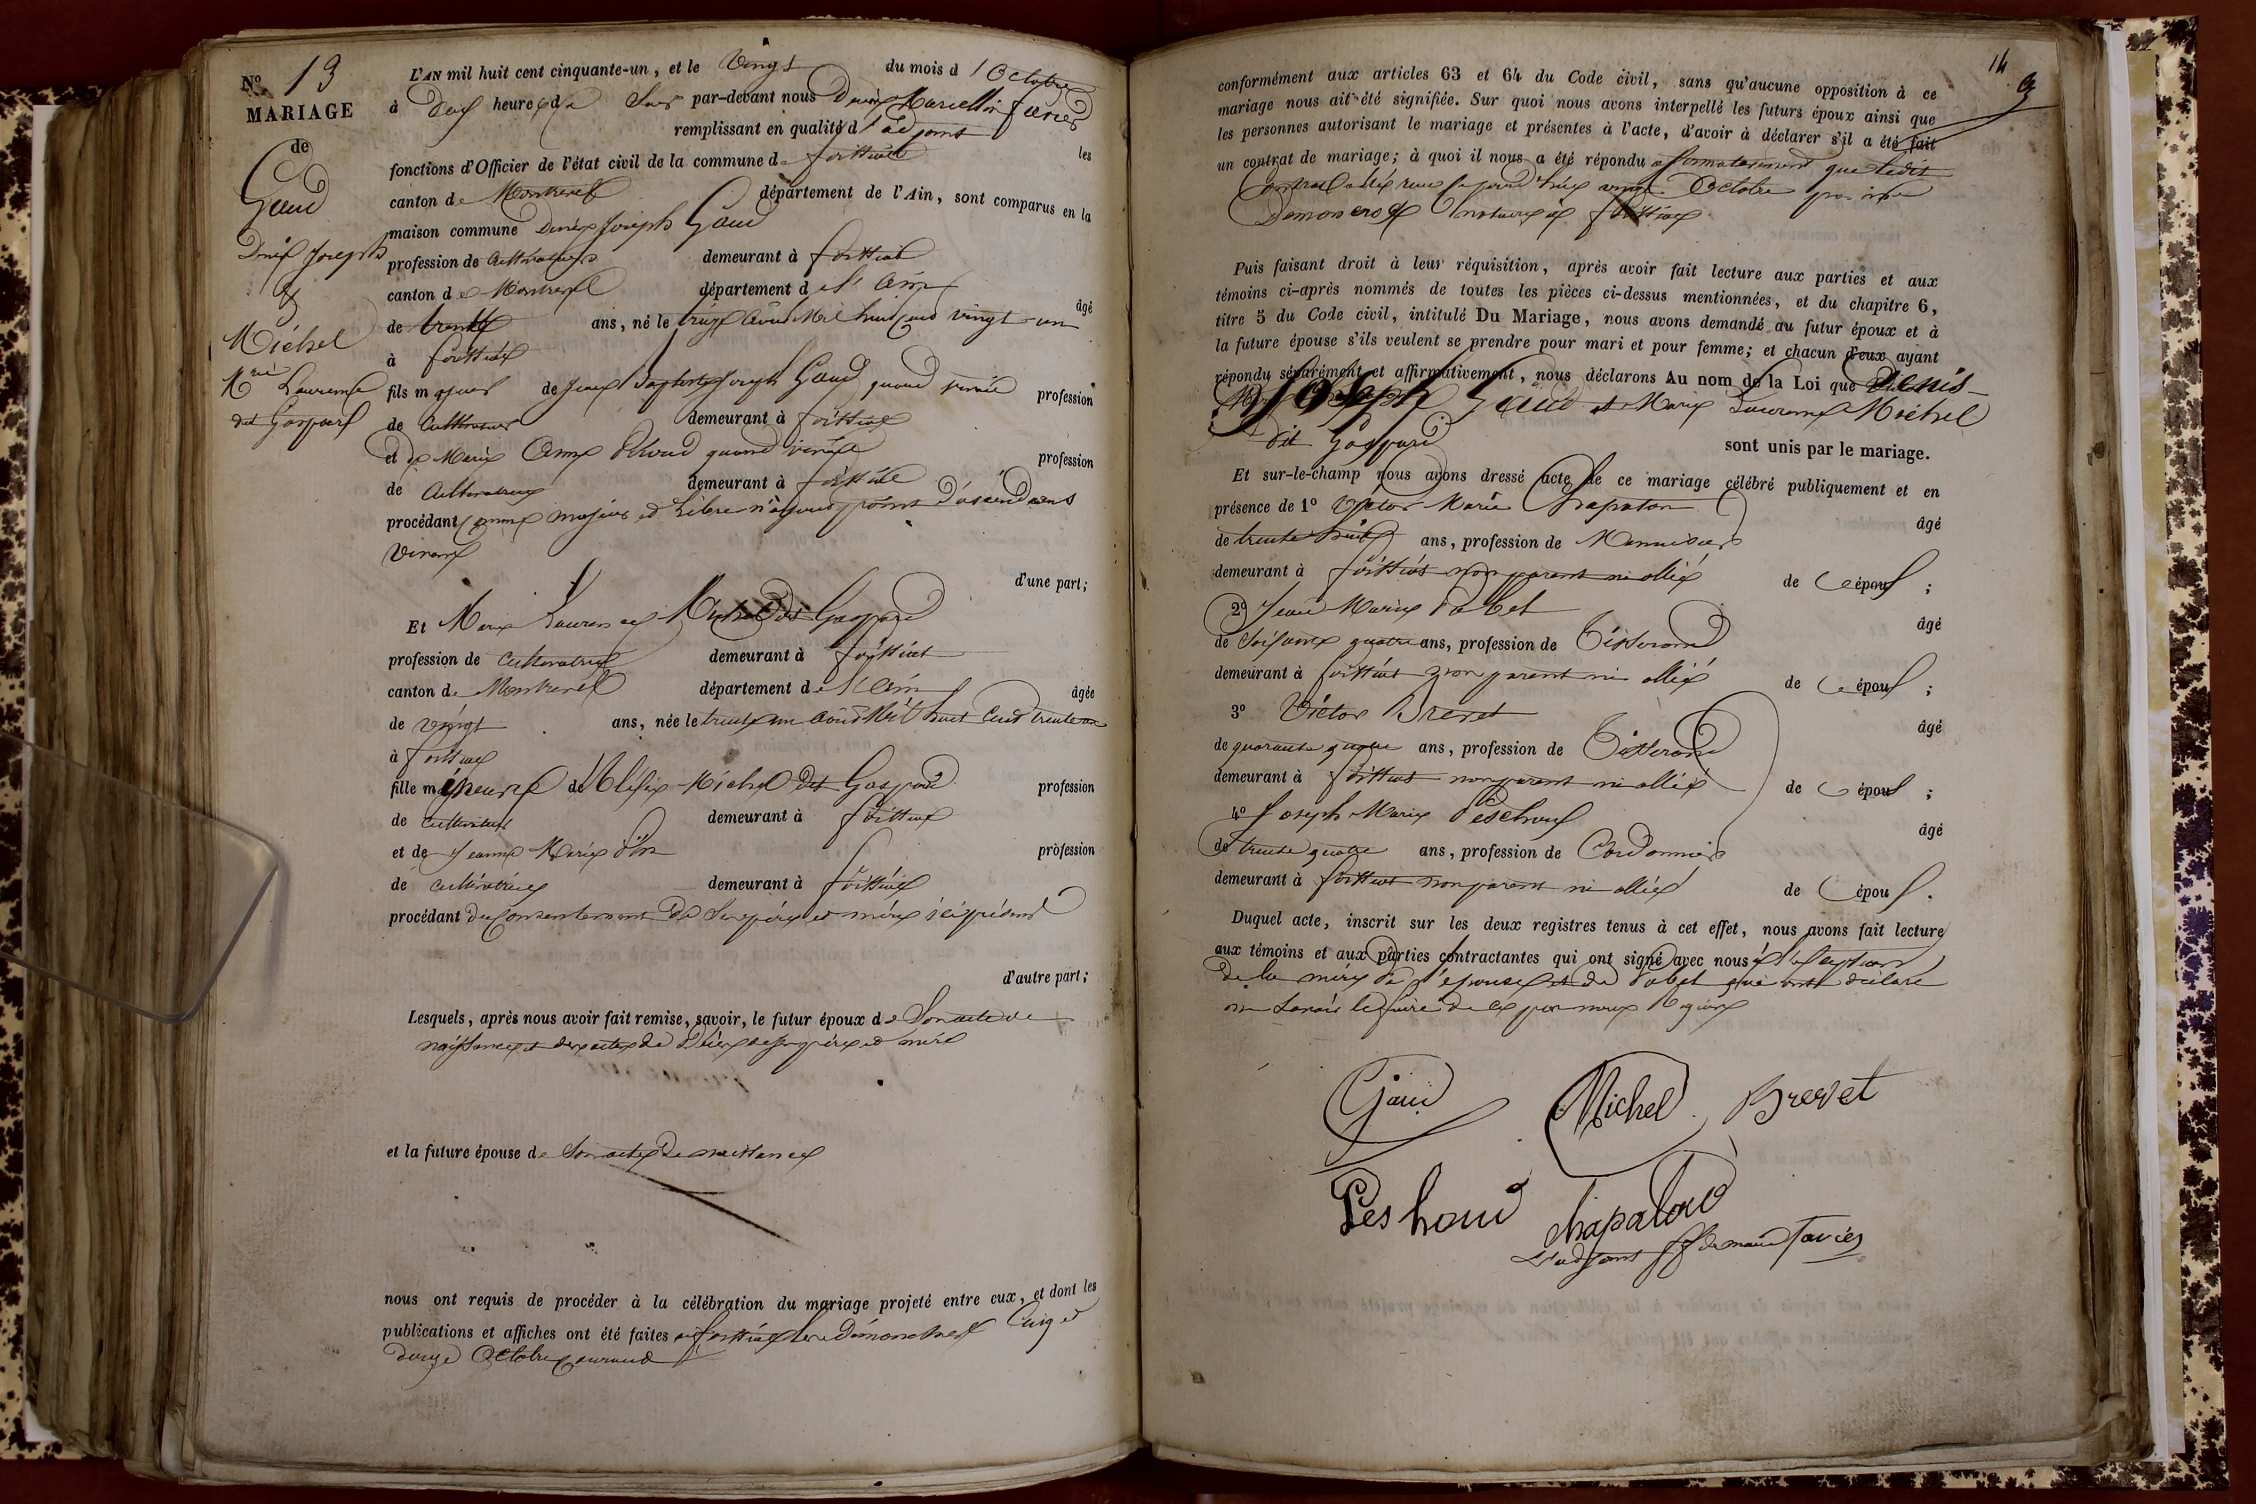 N° 13
MARIAGE
de
Gaud
Denis Joseph
&
Michel
Mrie Laurence
dit Gaspard
L'AN mil huit cent cinquante-un, et le vingt du mois d'Octobre
à deux heures du soir par-devant nous Denis Marcellin favier
remplissant en qualité d'adjoint les
fonctions d'Officier de l'état civil de la commune de foissiat
canton de Montrevel département de l'Ain, sont comparus en la
maison commune Denis Joseph Gaud
profession de cultivateur demeurant à foissiat
canton de Montrevel département de l'ain âgé
de trente ans, né le treize août Mil huit cent vingt-un
à foissiat
fils majeur de Jean Baptiste Joseph Gaud quand vivait profession
de cultivateur demeurant à foissiat
et de Marie quand vivait profession
de cultivatrice demeurant à foissiat
procédant comme majeur et libre n'ayant point d'ascendans
vivans
d'une part;
Et Marie Laurence Michel dit Gaspard
profession de cultivatrice demeurant à foissiat
canton de Montrevel département de l'ain âgée
de vingt ans, née le trente un août Mil huit cent trente un
à foissiat
fille mineure de Michel dit Gaspard profession
de cultivateur demeurant à foissiat
et de Jeanne Marie profession
de cultivatrice demeurant à foissiat
procédant du consentement de ses père et mère ici présent
d'autre part;
Lesquels, après nous avoir fait remise, savoir, le futur époux de son acte de
naissance et des actes de décès de ses père et mère
et la future épouse de son acte de naissance
nous ont requis de procéder à la célébration du mariage projeté entre eux, et dont les
publications et affiches ont été faites à foissiat les dimanches cinq et
douze Octobre courant
14
conformément aux articles 63 et 64 du Code civil, sans qu'aucune opposition à ce
mariage nous ait été signifiée. Sur quoi nous avons interpellé les futurs époux ainsi que
les personnes autorisant le mariage et présentes à l'acte, d'avoir à déclarer s'il a été fait
un contrat de mariage; à quoi il nous a été répondu affirmativement que ledit
contrat a été reçu vingt Octobre par
notaire à foissiat
Puis faisant droit à leur réquisition, après avoir fait lecture aux parties et aux
témoins ci-après nommés de toutes les pièces ci-dessus mentionnées, et du chapitre 6,
titre 5 du Code civil, intitulé Du Mariage, nous avons demandé au futur époux et à
la future épouse s'ils veulent se prendre pour mari et pour femme; et chacun d'eux ayant
répondu séparément et affirmativement, nous déclarons Au nom de la Loi que Denis-
Joseph Gaud et Marie Laurence Michel
dit Gaspard
sont unis par le mariage.
Et sur-le-champ nous avons dressé acte de ce mariage célébré publiquement et en
présence de 1° Victor Marie Chapaton âgé
de trente huit ans, profession de Menuisier
demeurant à foissiat non parent ni allié de époux;
2° Jean Marie âgé
de soixante quatre ans, profession de Tisserand
demeurant à foissiat non parent ni allié de époux;
3° Victor Brevet âgé
de quarante quatre ans, profession de Tisserand
demeurant à foissiat non parent ni allié de époux;
4° Joseph Marie Peschoux âgé
de trente quatre ans, profession de Cordonnier
demeurant à foissiat non parent ni allié de époux.
Duquel acte, inscrit sur les deux registres tenus à cet effet, nous avons fait lecture
aux témoins et aux parties contractantes qui ont signé avec nous à l'exception
de la mère de l'épouse et de qui ont déclaré
ne savoir le faire de ce par nous requis
Gaud Michel Brevet
Peshoud Chapaton
L'adjoint ff de maire favier